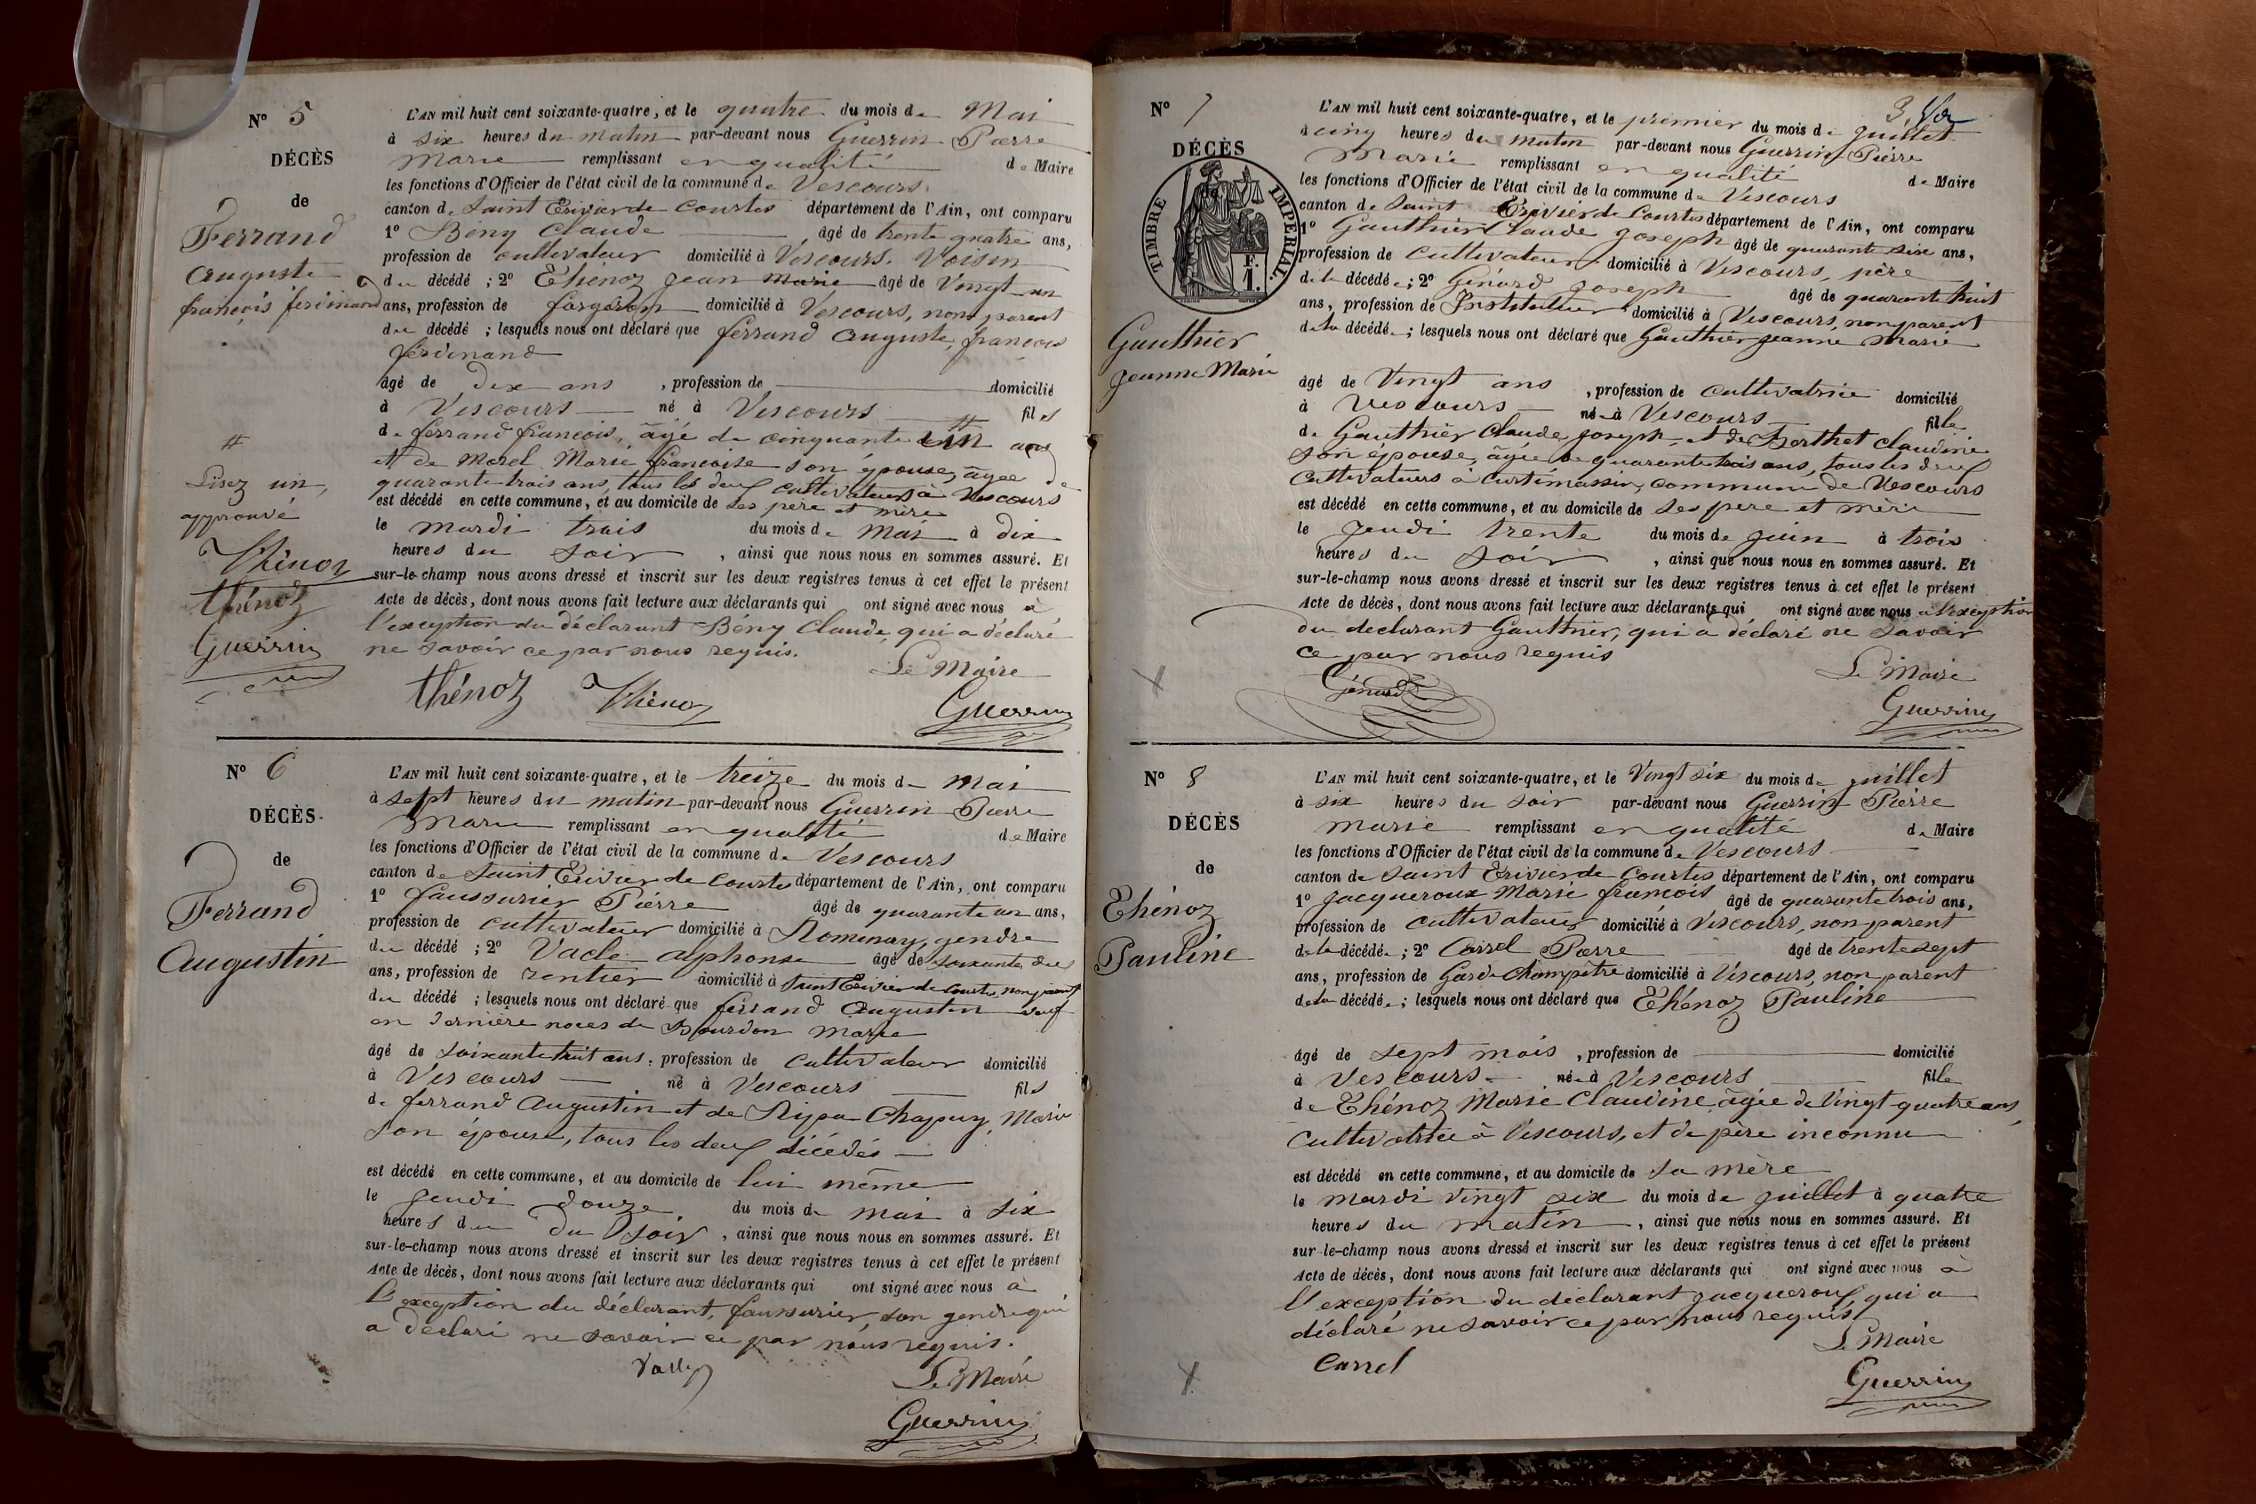 N° 5
DÉCÈS
de
Ferrand
Auguste
françois ferdinand
#
Lisez un,
approuvé
Thénoz
thénoz
Guerrin
L'AN mil huit cent soixante-quatre, et le quatre du mois de Mai
à six heures du matin par-devant nous Guerrin Pierre
Marie remplissant en qualité de Maire
les fonctions d'Officier de l'état civil de la commune de Vescours
canton de Saint Trivier de Courtes département de l'Ain, ont comparu
1° Bény Claude âgé de trente quatre ans,
profession de cultivateur domicilié à Vescours. Voisin
du décédé ; 2° Thénoz Jean Marie âgé de Vingt un
ans, profession de forgeron domicilié à Vescours, non parent
du décédé ; lesquels nous ont déclaré que ferrand Auguste, françois
ferdinand
âgé de dix ans , profession de domicilié
à Vescours né à Vescours fils
de ferrand françois, âgé de cinquante # ans
et de Morel Marie françoise son épouse, âgée de
quarante trois ans, tous les deux cultivateurs à Vescours
est décédé en cette commune, et au domicile de ses père et mère
le mardi trois du mois de mai à dix
heures du soir , ainsi que nous nous en sommes assuré. Et
sur-le-champ nous avons dressé et inscrit sur les deux registres tenus à cet effet le présent
Acte de décès, dont nous avons fait lecture aux déclarants qui ont signé avec nous à
l'exception du déclarant Bény Claude, qui a déclaré
ne savoir ce par nous requis.
Le Maire
thénoz Thénoz Guerrin
N° 6
DÉCÈS
de
Ferrand
Augustin
L'AN mil huit cent soixante-quatre, et le treize du mois de mai
à sept heures du matin par-devant nous Guerrin Pierre
Marie remplissant en qualité de Maire
les fonctions d'Officier de l'état civil de la commune de Vescours
canton de Saint Trivier de Courtes département de l'Ain, ont comparu
1° faussurier Pierre âgé de quarante un ans,
profession de cultivateur domicilié à Romenay, gendre
du décédé ; 2° Vacle alphonse âgé de soixante dix
ans, profession de rentier domicilié à Saint Trivier de Courtes, non parent
du décédé ; lesquels nous ont déclaré que ferrand Augustin veuf
en dernière noces de Bourdon Marie
âgé de soixante huit ans, profession de cultivateur domicilié
à Vescours né à Vescours fils
de ferrand Augustin et de Chapuy, Marie
son épouse, tous les deux décédés
est décédé en cette commune, et au domicile de lui même
le jeudi douze du mois de mai à six
heures du du soir , ainsi que nous nous en sommes assuré. Et
sur-le-champ nous avons dressé et inscrit sur les deux registres tenus à cet effet le présent
Acte de décès, dont nous avons fait lecture aux déclarants qui ont signé avec nous à
l'exception du déclarant, faussurier, son gendre qui
a déclaré ne savoir ce par nous requis.
Le Maire
Guerrin
3.
N° 7
DÉCÈS
TIMBRE IMPÉRIAL.
F.
1.
Gauthier
Jeanne Marie
L'AN mil huit cent soixante-quatre, et le premier du mois de juillet
à cinq heures du matin par-devant nous Guerrin Pierre
Marie remplissant en qualité de Maire
les fonctions d'Officier de l'état civil de la commune de Vescours
canton de Saint Trivier de Courtes département de l'Ain, ont comparu
1° Gauthier Claude Joseph âgé de quarante six ans,
profession de cultivateur domicilié à Vescours, père
de la décédée ; 2° Génard Joseph âgé de quarante huit
ans, profession de Instituteur domicilié à Vescours, non parent
de la décédée ; lesquels nous ont déclaré que Gauthier Jeanne Marie
âgé de Vingt ans , profession de cultivatrice domicilié
à Vescours né à Vescours fille
de Gauthier Claude Joseph et de Borthet Claudine
son épouse, âgée de quarante trois ans, tous les deux
Cultivateurs à Curtimassin, commune de Vescours
est décédé en cette commune, et au domicile de ses père et mère
le jeudi trente du mois de juin à trois
heures du soir , ainsi que nous nous en sommes assuré. Et
sur-le-champ nous avons dressé et inscrit sur les deux registres tenus à cet effet le présent
Acte de décès, dont nous avons fait lecture aux déclarants qui ont signé avec nous à l'exception
du déclarant Gauthier, qui a déclaré ne savoir
ce par nous requis
Le Maire
Génard Guerrin
N° 8
DÉCÈS
de
Thénoz
Pauline
L'AN mil huit cent soixante-quatre, et le Vingt six du mois de juillet
à six heures du soir par-devant nous Guerrin Pierre
Marie remplissant en qualité de Maire
les fonctions d'Officier de l'état civil de la commune de Vescours
canton de Saint Trivier de Courtes département de l'Ain, ont comparu
1° Jacqueroux Marie françois âgé de quarante trois ans,
profession de cultivateur domicilié à Vescours, non parent
de la décédée ; 2° Carrel Pierre âgé de trente sept
ans, profession de Garde Champêtre domicilié à Vescours, non parent
de la décédée ; lesquels nous ont déclaré que Thénoz Pauline
âgé de sept mois , profession de domicilié
à Vescours né à Vescours fille
de Thénoz Marie Claudine âgée de Vingt quatre ans,
cultivatrice à Vescours, et de père inconnu
est décédé en cette commune, et au domicile de sa mère
le mardi vingt six du mois de juillet à quatre
heures du matin , ainsi que nous nous en sommes assuré. Et
sur-le-champ nous avons dressé et inscrit sur les deux registres tenus à cet effet le présent
Acte de décès, dont nous avons fait lecture aux déclarants qui ont signé avec nous à
l'exception du déclarant Jacqueroux, qui a
déclaré ne savoir ce par nous requis
Le Maire
Carrel Guerrin